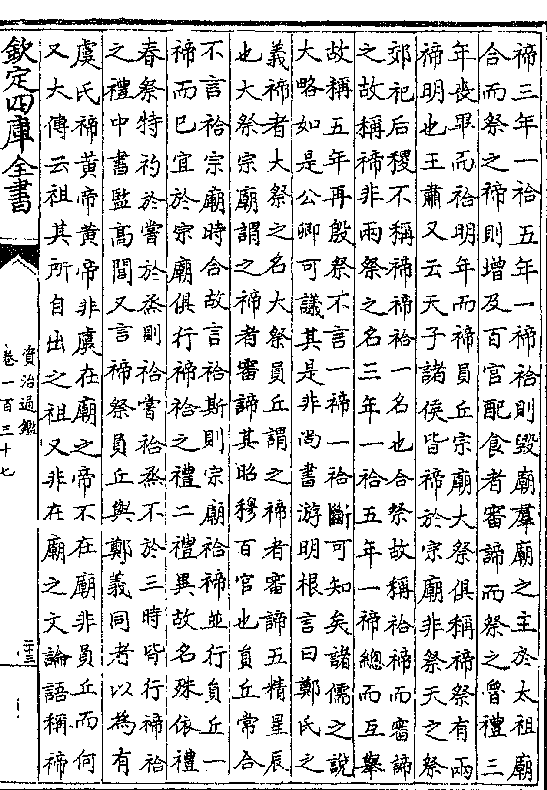 禘三年一祫五年一禘祫則毀廟羣廟之主於太祖廟
合而祭之禘則增及百官配食者審諦而祭之魯禮三
年喪畢而祫明年而禘員丘宗廟大祭俱稱禘祭有兩
禘明也王肅又云天子諸侯皆禘於宗廟非祭天之祭
郊祀后稷不稱禘禘祫一名也合祭故稱祫禘而審諦
之故稱禘非兩祭之名三年一祫五年一禘總而互舉
故稱五年再殷祭不言一禘一祫斷可知矣諸儒之說
大略如是公卿可議其是非尚書游明根言曰鄭氏之
義禘者大祭之名大祭員丘謂之禘者審諦五精星辰
也大祭宗廟謂之禘者審諦其昭穆百官也員丘常合
不言祫宗廟時合故言祫斯則宗廟祫禘並行員丘一
禘而已宜於宗廟俱行禘祫之禮二禮異故名殊依禮
春祭特礿於嘗於烝則祫嘗祫烝不於三時皆行禘祫
之禮中書監髙閭又言禘祭員丘與鄭義同者以為有
虞氏禘黄帝黄帝非虞在廟之帝不在廟非員丘而何
又大傳云祖其所自出之祖又非在廟之文論語稱禘
欽定四庫全書
資治通鑑
卷一百三十七
二十三